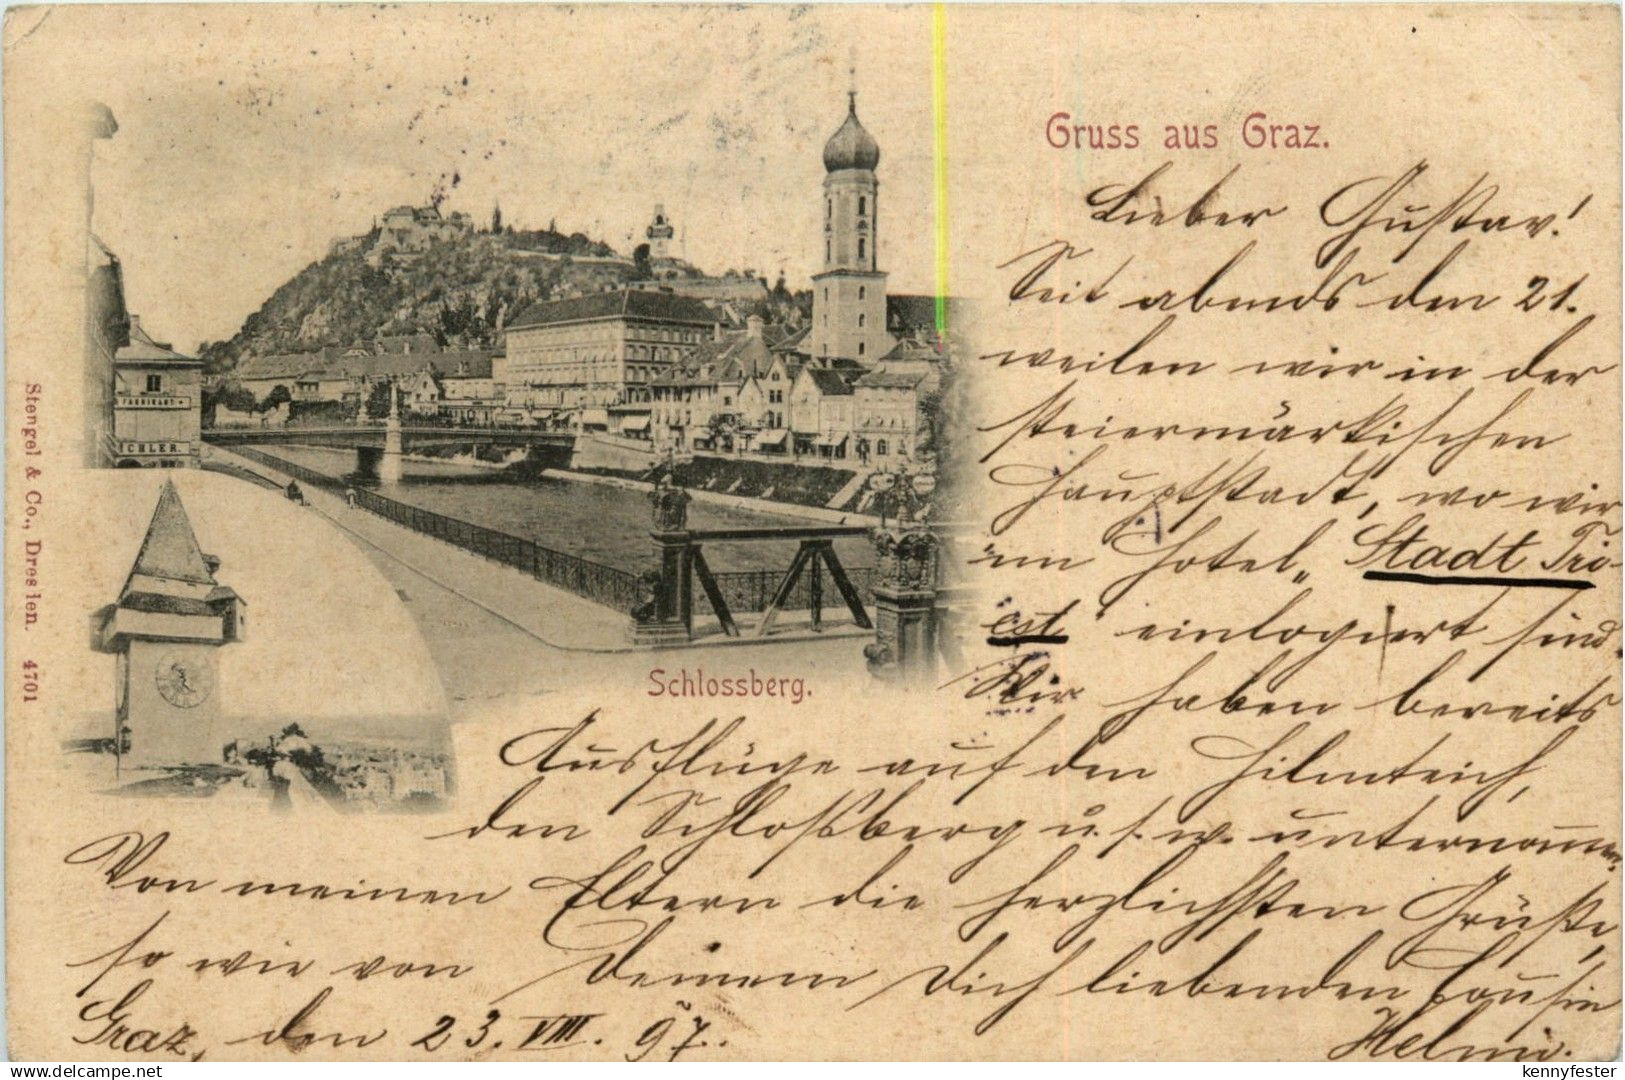 Gruss aus Graz.
Lieber Gustav!
Seit abends den 21.
weilen wir in der
steiermärkischen
Hauptstadt, wo wir
im Hotel „Stadt Tri-
est" einlogiert sind.
Wir haben bereits
Ausflüge auf den Hilmteich,
den Schloßberg u. s. w. unternommen.
Von meinen Eltern die herzlichsten Grüße,
so wie von Deinem Dich liebenden Cousin
Graz, den 23. VIII. 97.
Helmi.
Schlossberg.
Stengel & Co., Dresden. 4701
FABRIKANT
CHLER.
delcampe.net
kennyfester